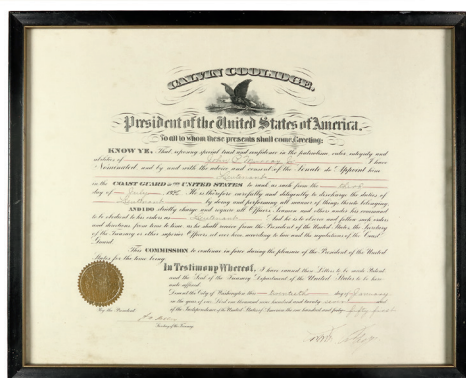 CALVIN COOLIDGE,
President of the United States of America.
To all to whom these presents shall come, Greeting:
KNOW YE, That reposing special trust and confidence in the patriotism, valor, integrity and
abilities of I have
Nominated, and by and with the advice and consent of the Senate do Appoint him
Lieutenant
in the COAST GUARD of the UNITED STATES to rank as such from the
day of He is therefore carefully and diligently to discharge the duties of
Lieutenant by doing and performing all manner of things thereto belonging.
AND I DO strictly charge and require all Officers Seamen and others under his command
to be obedient to his orders as Lieutenant And he is to observe and follow such orders
and directions from time to time as he shall receive from the President of the United States, the Secretary
of the Treasury or other superior Officers set over him, according to law and the regulations of the Coast
Guard.
This COMMISSION to continue in force during the pleasure of the President of the United
States for the time being.
In Testimony Whereof, I have caused these Letters to be made Patent
and the Seal of the Treasury Department of the United States to be here-
unto affixed.
Done at the City of Washington this twentieth day of January
in the year of our Lord one thousand nine hundred and twenty and
of the Independence of the United States of America the one hundred and fifty first
By the President
Secretary of the Treasury.